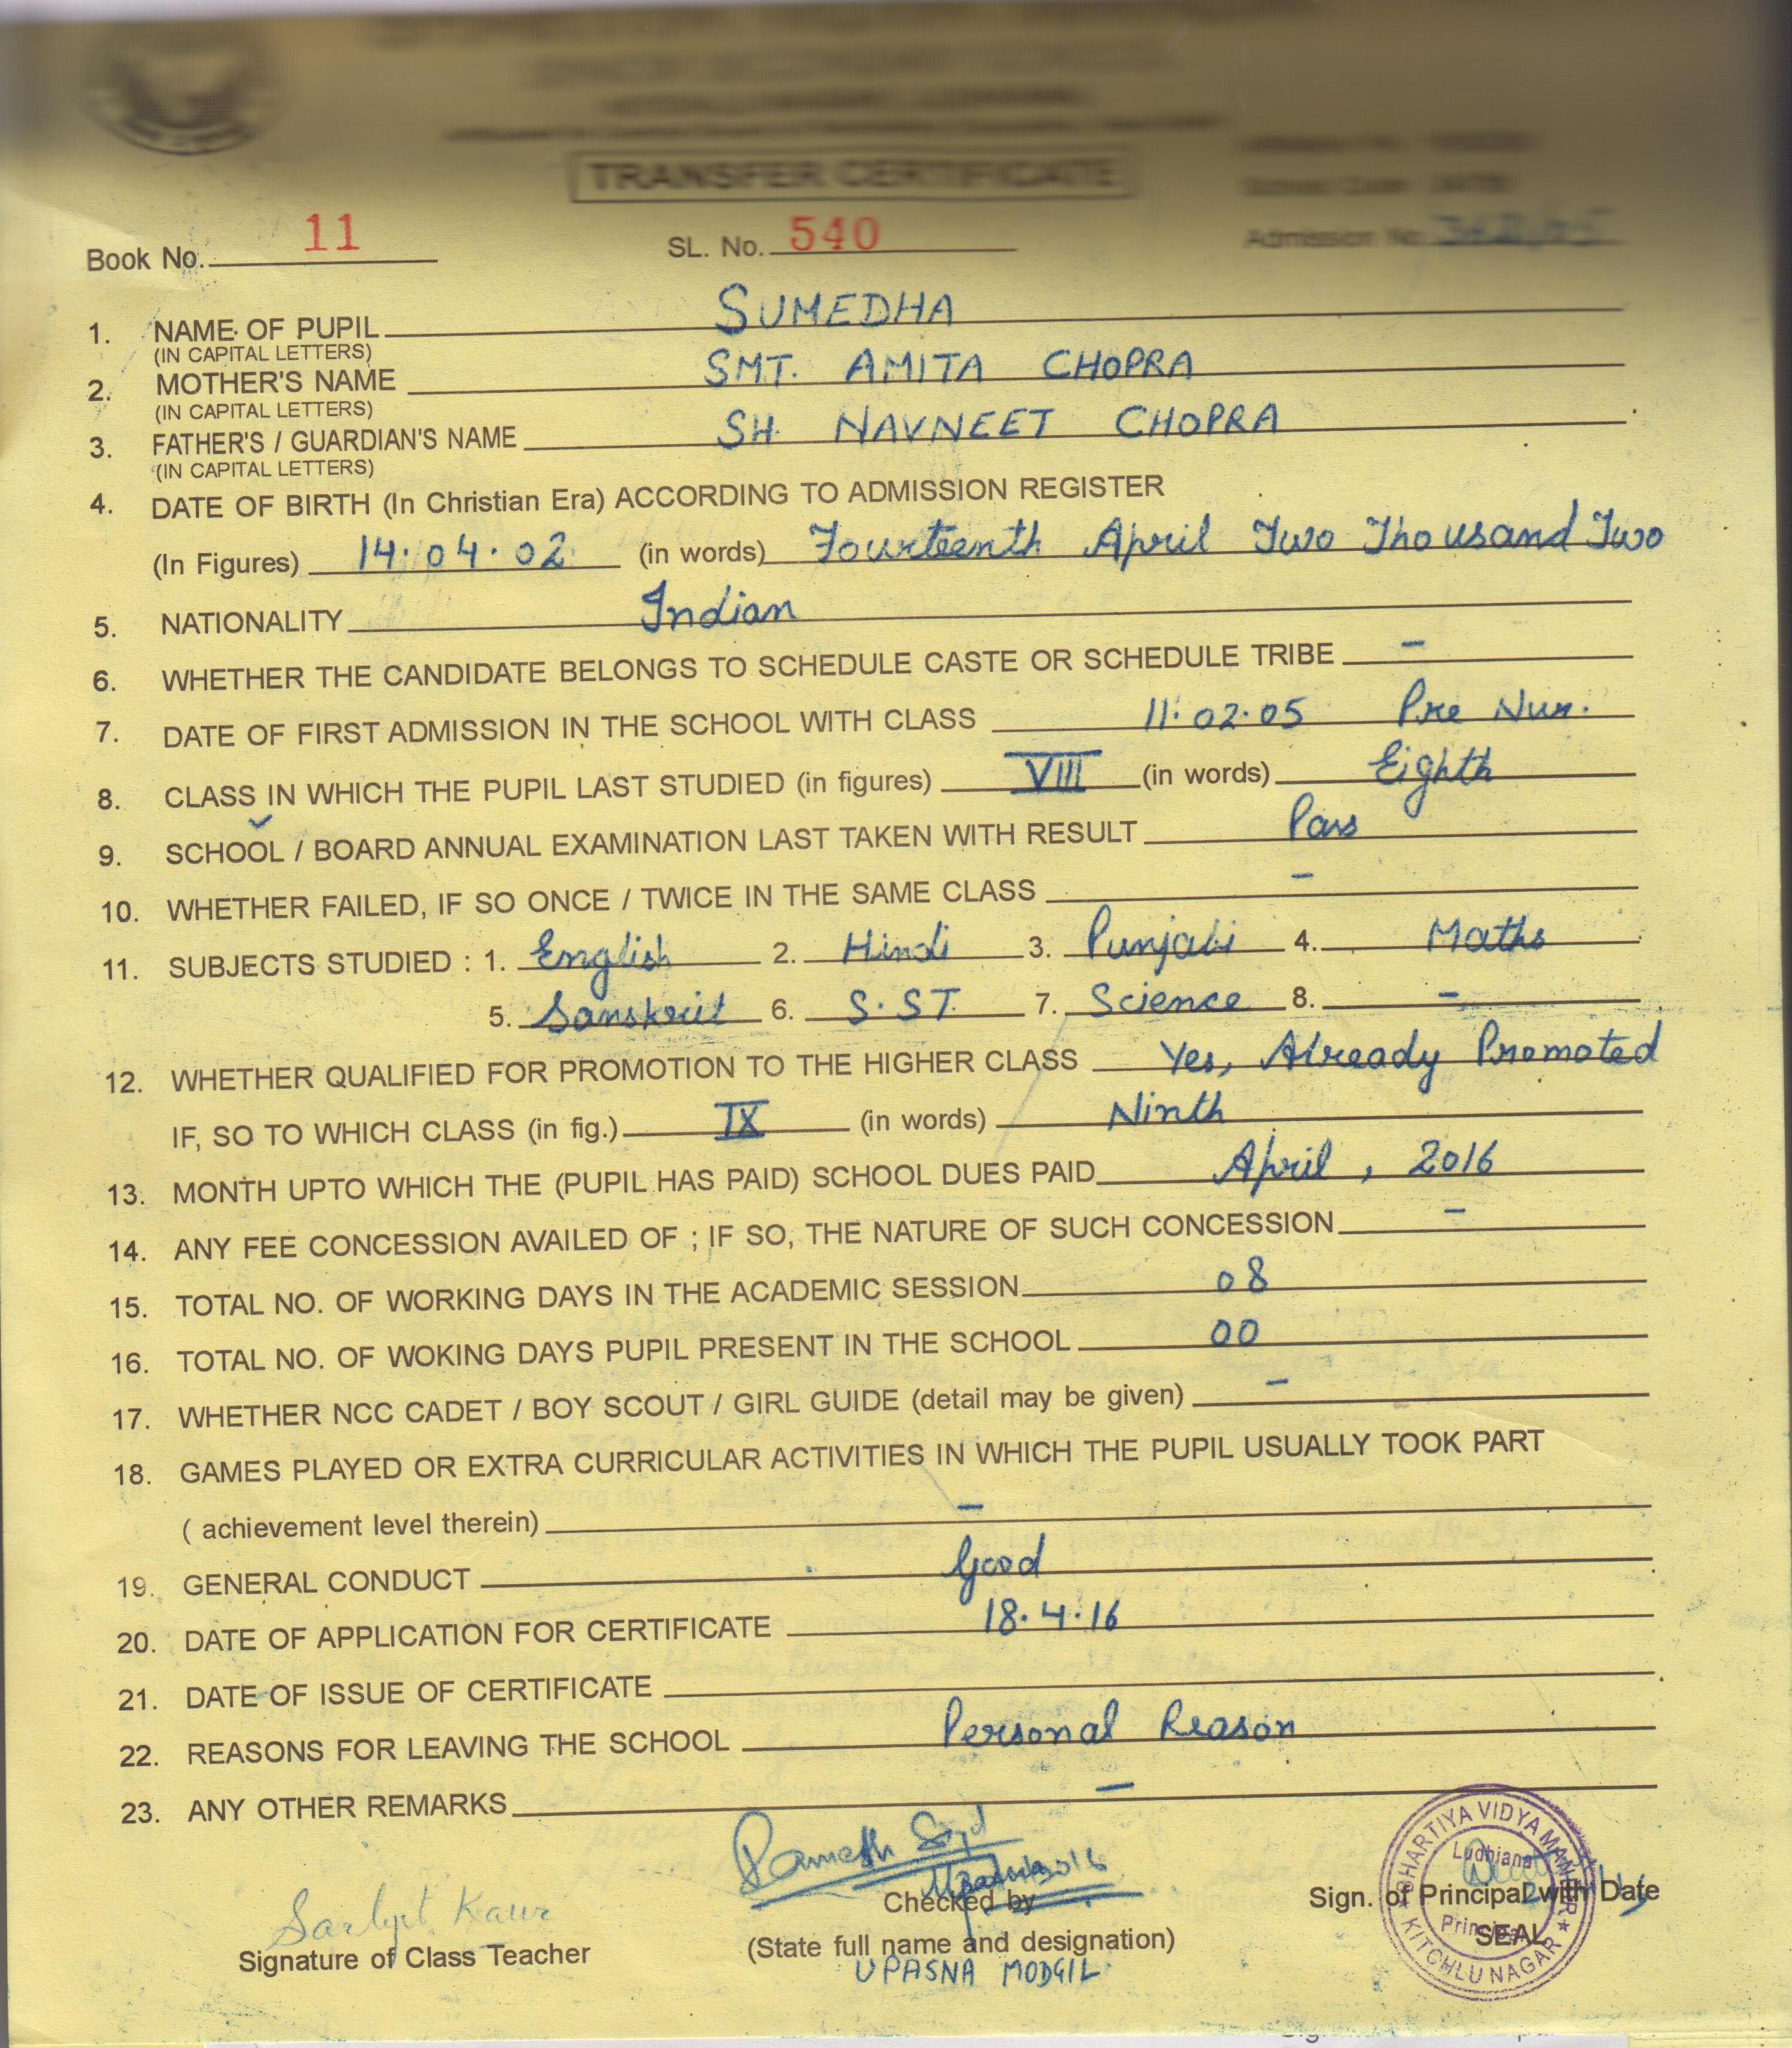 TRANSFER CERTIFICATE
Book No. 11 SL. No. 540 Admission No.
1. NAME OF PUPIL SUMEDHA
(IN CAPITAL LETTERS)
2. MOTHER'S NAME SMT. AMITA CHOPRA
(IN CAPITAL LETTERS)
3. FATHER'S / GUARDIAN'S NAME SH. NAVNEET CHOPRA
(IN CAPITAL LETTERS)
4. DATE OF BIRTH (In Christian Era) ACCORDING TO ADMISSION REGISTER
(In Figures) 14.04.02 (in words) Fourteenth April Two Thousand Two
5. NATIONALITY Indian
6. WHETHER THE CANDIDATE BELONGS TO SCHEDULE CASTE OR SCHEDULE TRIBE -
7. DATE OF FIRST ADMISSION IN THE SCHOOL WITH CLASS 11.02.05 Pre Nur.
8. CLASS IN WHICH THE PUPIL LAST STUDIED (in figures) VIII (in words) Eighth
9. SCHOOL / BOARD ANNUAL EXAMINATION LAST TAKEN WITH RESULT Pass
10. WHETHER FAILED, IF SO ONCE / TWICE IN THE SAME CLASS -
11. SUBJECTS STUDIED : 1. English 2. Hindi 3. Punjabi 4. Maths
5. Sanskrit 6. S.ST. 7. Science 8. -
12. WHETHER QUALIFIED FOR PROMOTION TO THE HIGHER CLASS Yes, Already Promoted
IF, SO TO WHICH CLASS (in fig.) IX (in words) Ninth
13. MONTH UPTO WHICH THE (PUPIL HAS PAID) SCHOOL DUES PAID April, 2016
14. ANY FEE CONCESSION AVAILED OF ; IF SO, THE NATURE OF SUCH CONCESSION -
15. TOTAL NO. OF WORKING DAYS IN THE ACADEMIC SESSION 08
16. TOTAL NO. OF WOKING DAYS PUPIL PRESENT IN THE SCHOOL 00
17. WHETHER NCC CADET / BOY SCOUT / GIRL GUIDE (detail may be given) -
18. GAMES PLAYED OR EXTRA CURRICULAR ACTIVITIES IN WHICH THE PUPIL USUALLY TOOK PART
( achievement level therein) -
19. GENERAL CONDUCT Good
20. DATE OF APPLICATION FOR CERTIFICATE 18.4.16
21. DATE OF ISSUE OF CERTIFICATE
22. REASONS FOR LEAVING THE SCHOOL Personal Reason
23. ANY OTHER REMARKS -
BHARTIYA VIDYA MANDIR
Ludhiana
Principal
KITCHLU NAGAR
Kaur
Signature of Class Teacher
Checked by
(State full name and designation)
UPASNA MODGIL
Sign. of Principal with Date
SEAL